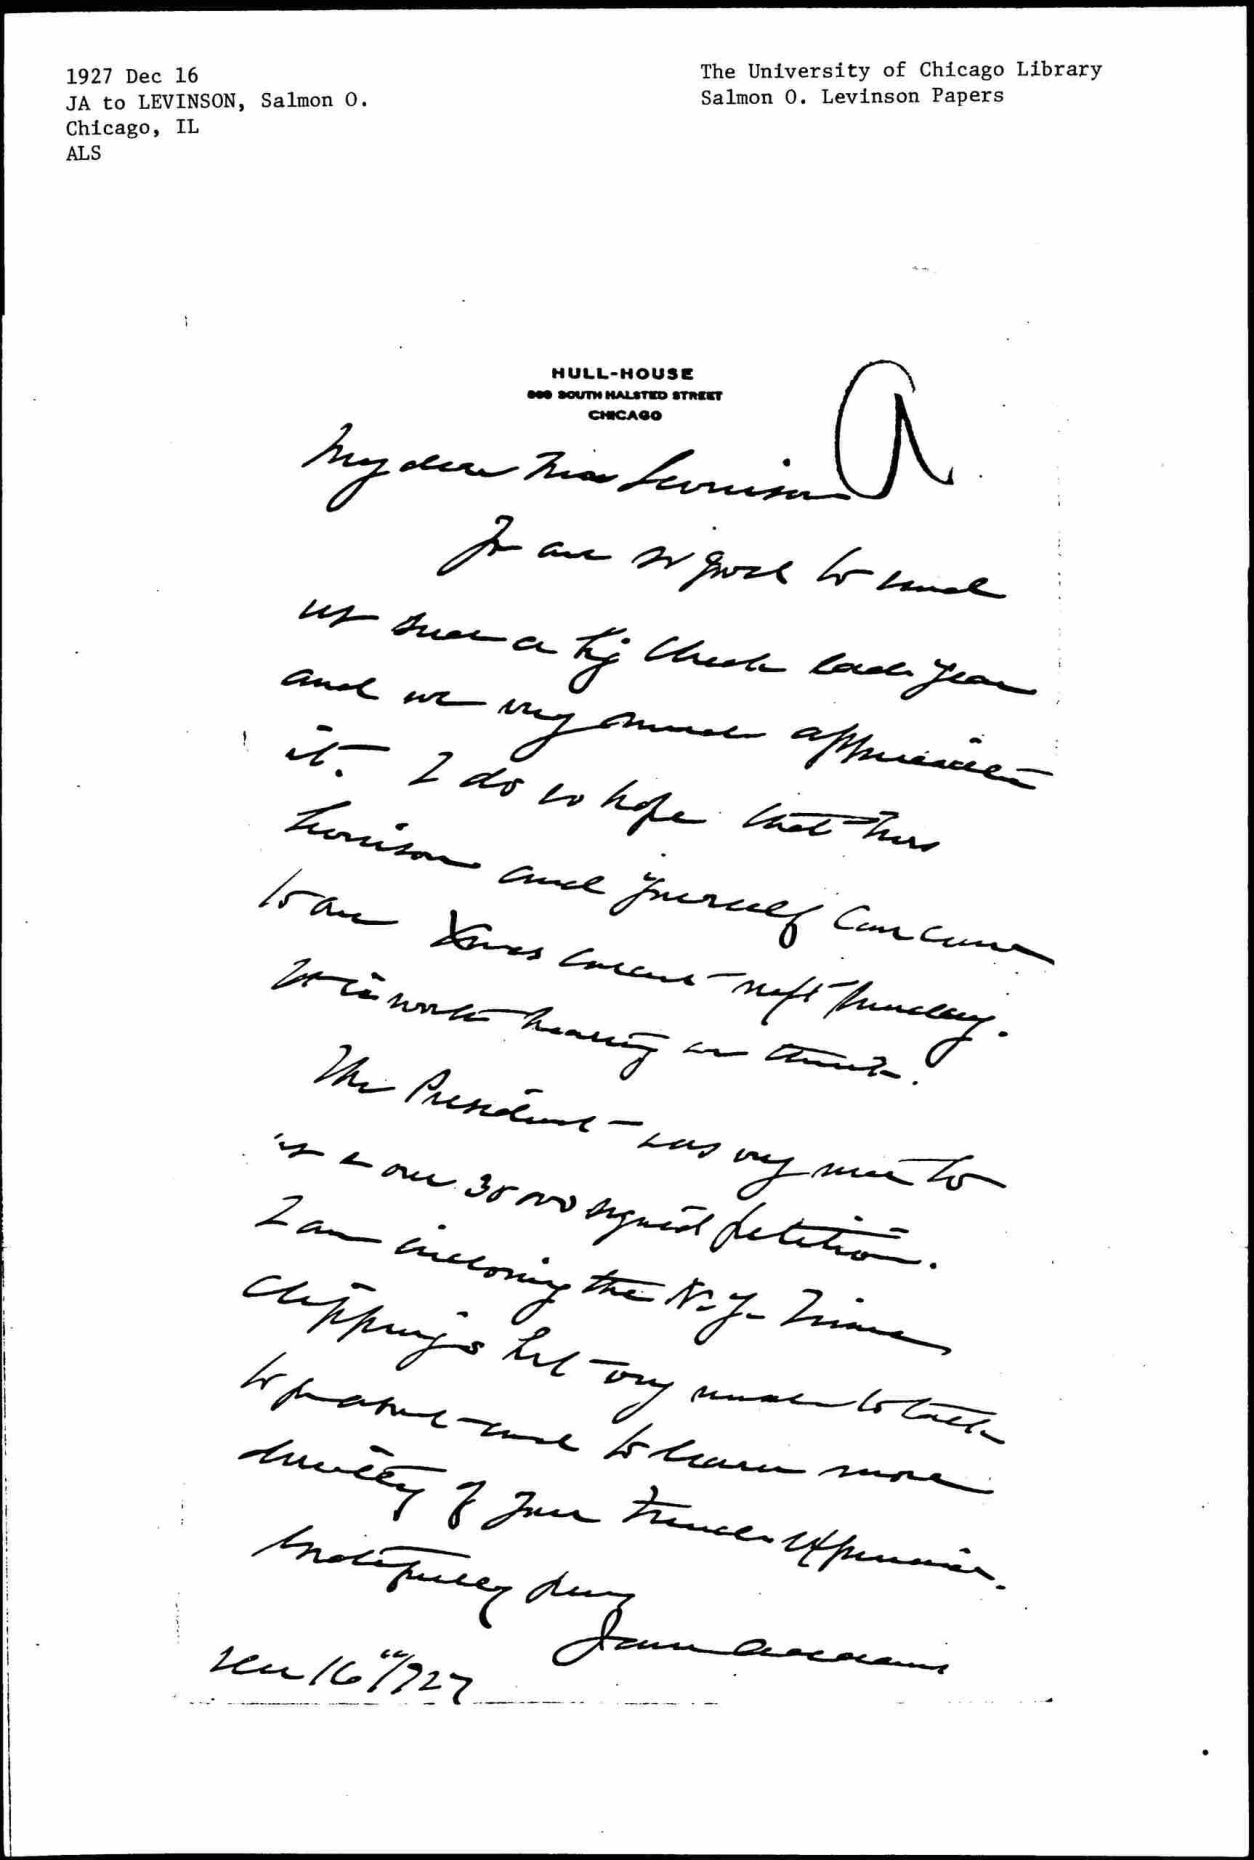 1927 Dec 16
JA to LEVINSON, Salmon O.
Chicago, IL
ALS
The University of Chicago Library
Salmon O. Levinson Papers
HULL-HOUSE
800 SOUTH HALSTED STREET
CHICAGO
My dear Mr Levinson
Yo are so good to send
us such a big check each year
and we very much appreciate
it. I do so hope that Mrs
Levinson and yourself can come
to our Xmas concert next Sunday.
It is worth hearing we think.
The President was very nice to
us & our 30 000 signed petition.
I am inclosing the N.Y. Times
clippings but very much to talk
to and to learn more
directly of your French experience.
Gratefully yours
Jane Addams
Dec 16" 1927